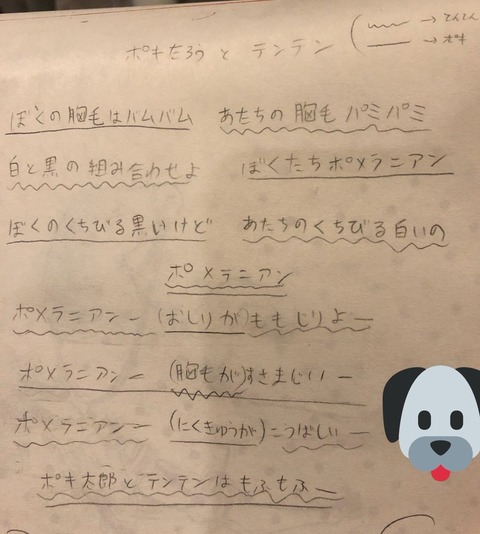 ポキたろうとテンテン
→てんてん
→ポキ
ぼくの胸毛はバムバム あたちの胸毛パミパミ
白と黒の組み合わせよ ぼくたちポメラニアン
ぼくのくちびる黒いけど あたちのくちびる白いの
ポメラニアン
ポメラニアンー (おしりが)ももじりよー
ポメラニアンー (胸毛が)すさまじいー
ポメラニアンー (にくきゅうが)こうばしいー
ポキ太郎とテンテンはもふもふー